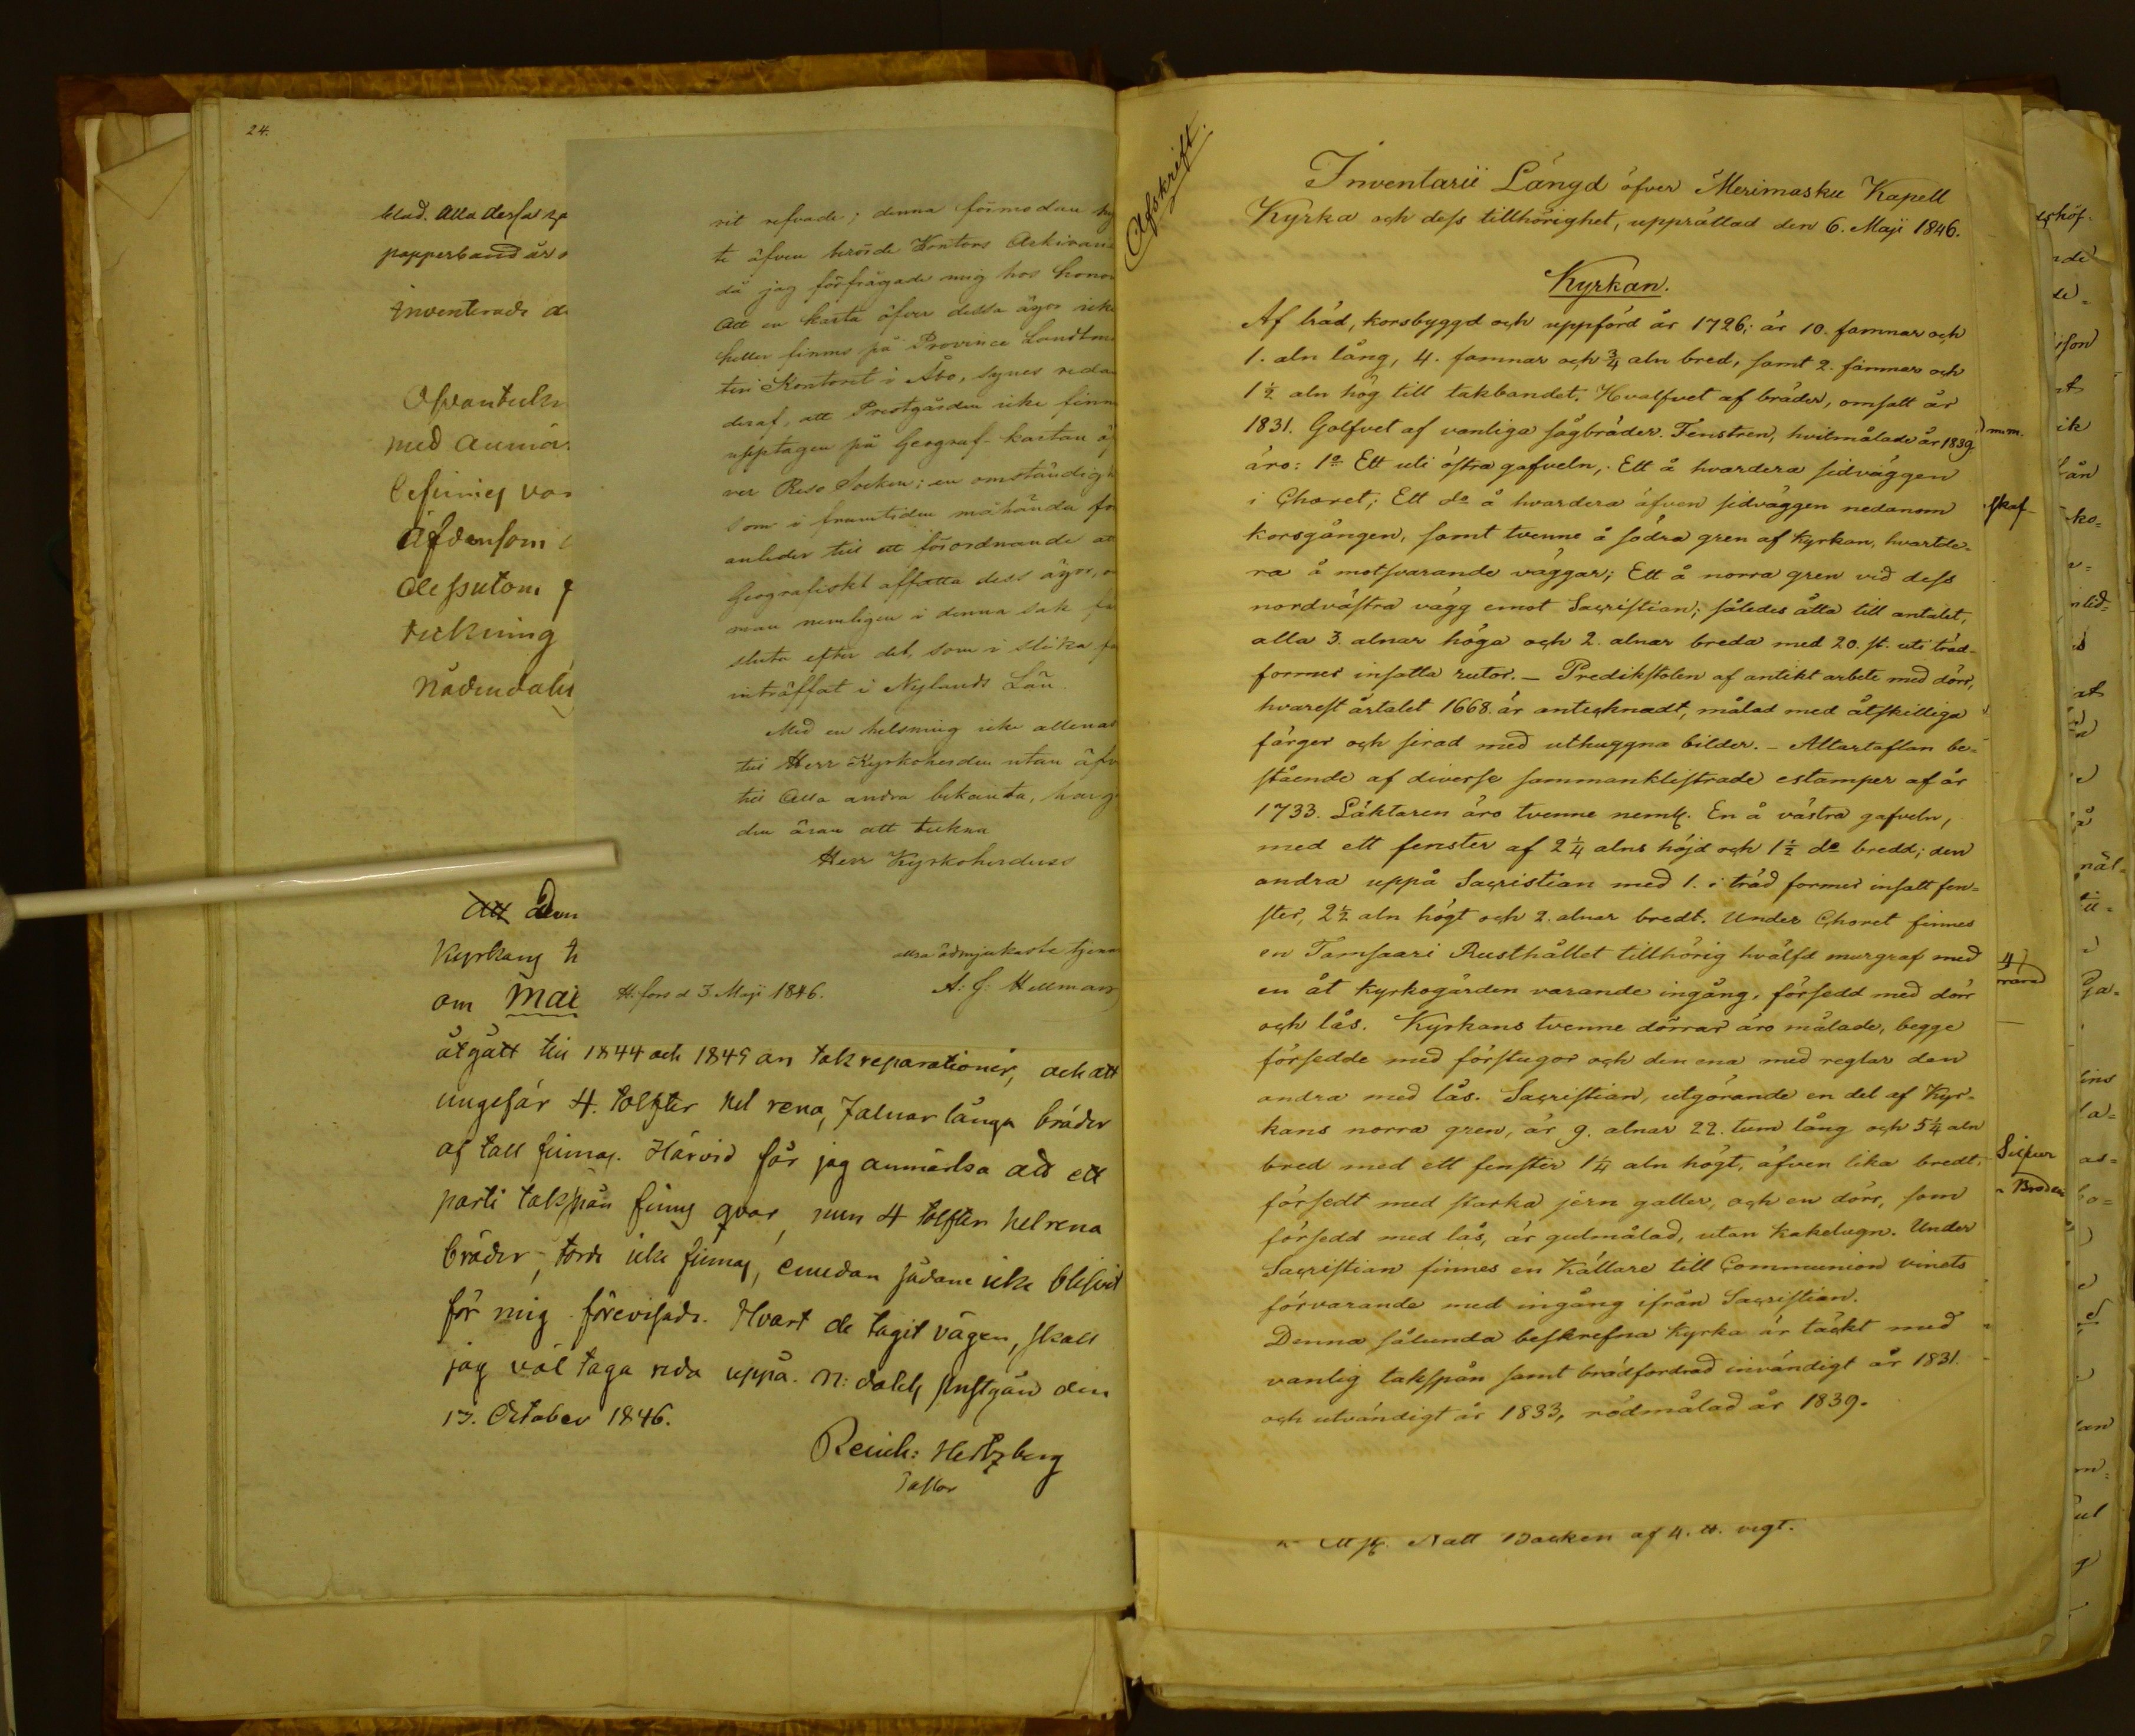 24.
blad. Alla dessa
papperband är
Inventerade
Ofvanteckn
med anmär
befinnes
Äfvensom
dessutom
teckning
Nådendals
rit refvade; denna förmodan
te äfven berörde Kontors Arkivari
då jag förfrågade mig hos honom
Att en karta öfver dessa ägor icke
heller finnes på Province Landtm
teri Kontoret i Åbo, synes reda
deraf, att Prestgården icke finn
upptagen på Geograf-kartan öf
ver Reso Socken; en omständigh
som i framtiden måhända
anleder till ett förordnande at
Geografiskt affatta dess ägor,
man nemligen i denna sak
sluta efter det, som i slika
inträffat i Nylands Län.
Med en helsning icke allenast
till Herr Kyrkoherden utan äfv
till Alla andra bekanta, har
den äran att teckna
Herr Kyrkoherdens
allra ödmjukaste tjena
H:fors d 3 Maji 1846.
A: G: Hellman
Att den
Kyrkans
om
åtgått till 1844 och 1845 an takreparationer, och att
ungefär 4. tolfter hel rena, 7 alnar långa bräder
af tall finnas. Härvid får jag anmärka att ett
parti takspån finns qvar, men 4 tolfter helrena
bräder, torde icke finnas, emedan sådane icke blifvit
för mig förevisade. Hvart de tagit vägen, skall
jag väl taga reda uppå. N:dahls prestgård den
17. October 1846.
Reinh: Hertzberg
Pastor
Afskrift.
Inventarii Längd öfver Merimasku Kapell
Kyrka och dess tillhörighet, upprättad den 6. Maji 1846.
Kyrkan.
Af träd, korsbyggd och uppförd år 1726; är 10. famnar och
1. aln lång, 4. famnar och ¾ aln bred, samt 2. famnar och
1½ aln hög till takbandet. Hvalfvet af bräder, omsatt år
1831. Golfvet af vanliga sågbräder. Fenstren, hvitmålade år 1839,
äro: 1o Ett uti östra gafveln, Ett å hvardera sidväggen
i Choret; Ett do å hvardera äfven sidväggen nedanom
korsgången, samt tvenne å södra gren af Kyrkan, hvartde-
ra å motsvarande väggar; Ett å norra gren vid dess
nordvästra vägg emot Sacristian; således åtta till antalet,
alla 3. alnar höga och 2. alnar breda med 20. st. uti träd-
former insatta rutor. – Predikstolen af antikt arbete med dörr,
hvarest årtalet 1668. är antecknadt, målad med åtskilliga
färger och sirad med uthuggna bilder. – Altartaflan be-
stående af diverse sammanklistrade estamper af år
1733. Läktaren äro tvenne neml. En å västra gafveln,
med ett fenster af 2¼ alns höjd och 1½ do bredd; den
andra uppå Sacristian med 1. i träd former insatt fen-
ster, 2½ aln högt och 2. alnar bredt. Under Choret finnes
en Tamsaari Rusthållet tillhörig hvälfd murgraf med
en åt Kyrkogården varande ingång, försedd med dörr
och lås. Kyrkans tvenne dörrar äro målade, begge
försedde med förstugor och den ena med reglar den
andra med lås. Sacristian, utgörande en del af Kyr-
kans norra gren, är 9. alnar 22. tum lång och 5¼ aln
bred med ett fenster 1¼ aln högt, äfven lika bredt,
försedt med starka jern galler, och en dörr, som
försedd med lås, är gulmålad, utan kakelugn. Under
Sacristian finnes en Källare till Communion vinets
förvarande med ingång ifrån Sacristian.
Denna sålunda beskrefna Kyrka är täckt med
vanlig takspån samt brädfordrad invändigt år 1831.
och utvändigt år 1833, rödmålad år 1839.
Natt Backen af 4. ℔. vigt.